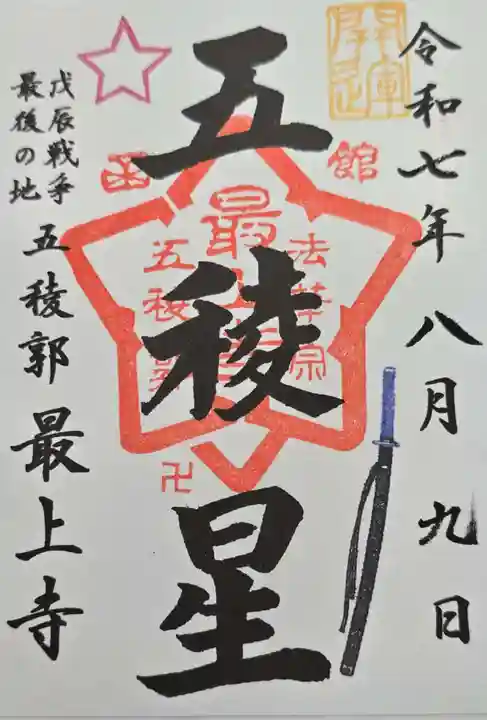 令和七年八月九日
五稜星
函館
法華宗
最上寺
五稜郭
卍
戊辰戦争
最後の地
五稜郭最上寺